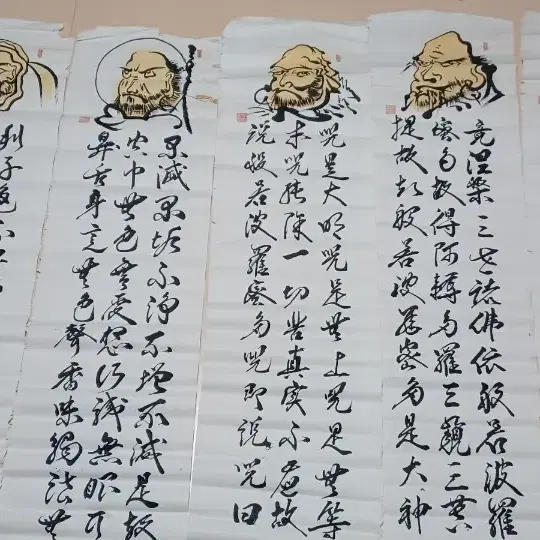 竟涅槃三世諸佛依般若波羅
密多故得阿耨多羅三藐三菩
提故知般若波羅密多是大神
咒是大明咒是無上咒是無等
等咒能除一切苦真實不虛故
說般若波羅密多咒即說咒曰
不滅不垢不淨不增不減是故
空中無色無受想行識無眼耳
鼻舌身意無色聲香味觸法無
利子色不